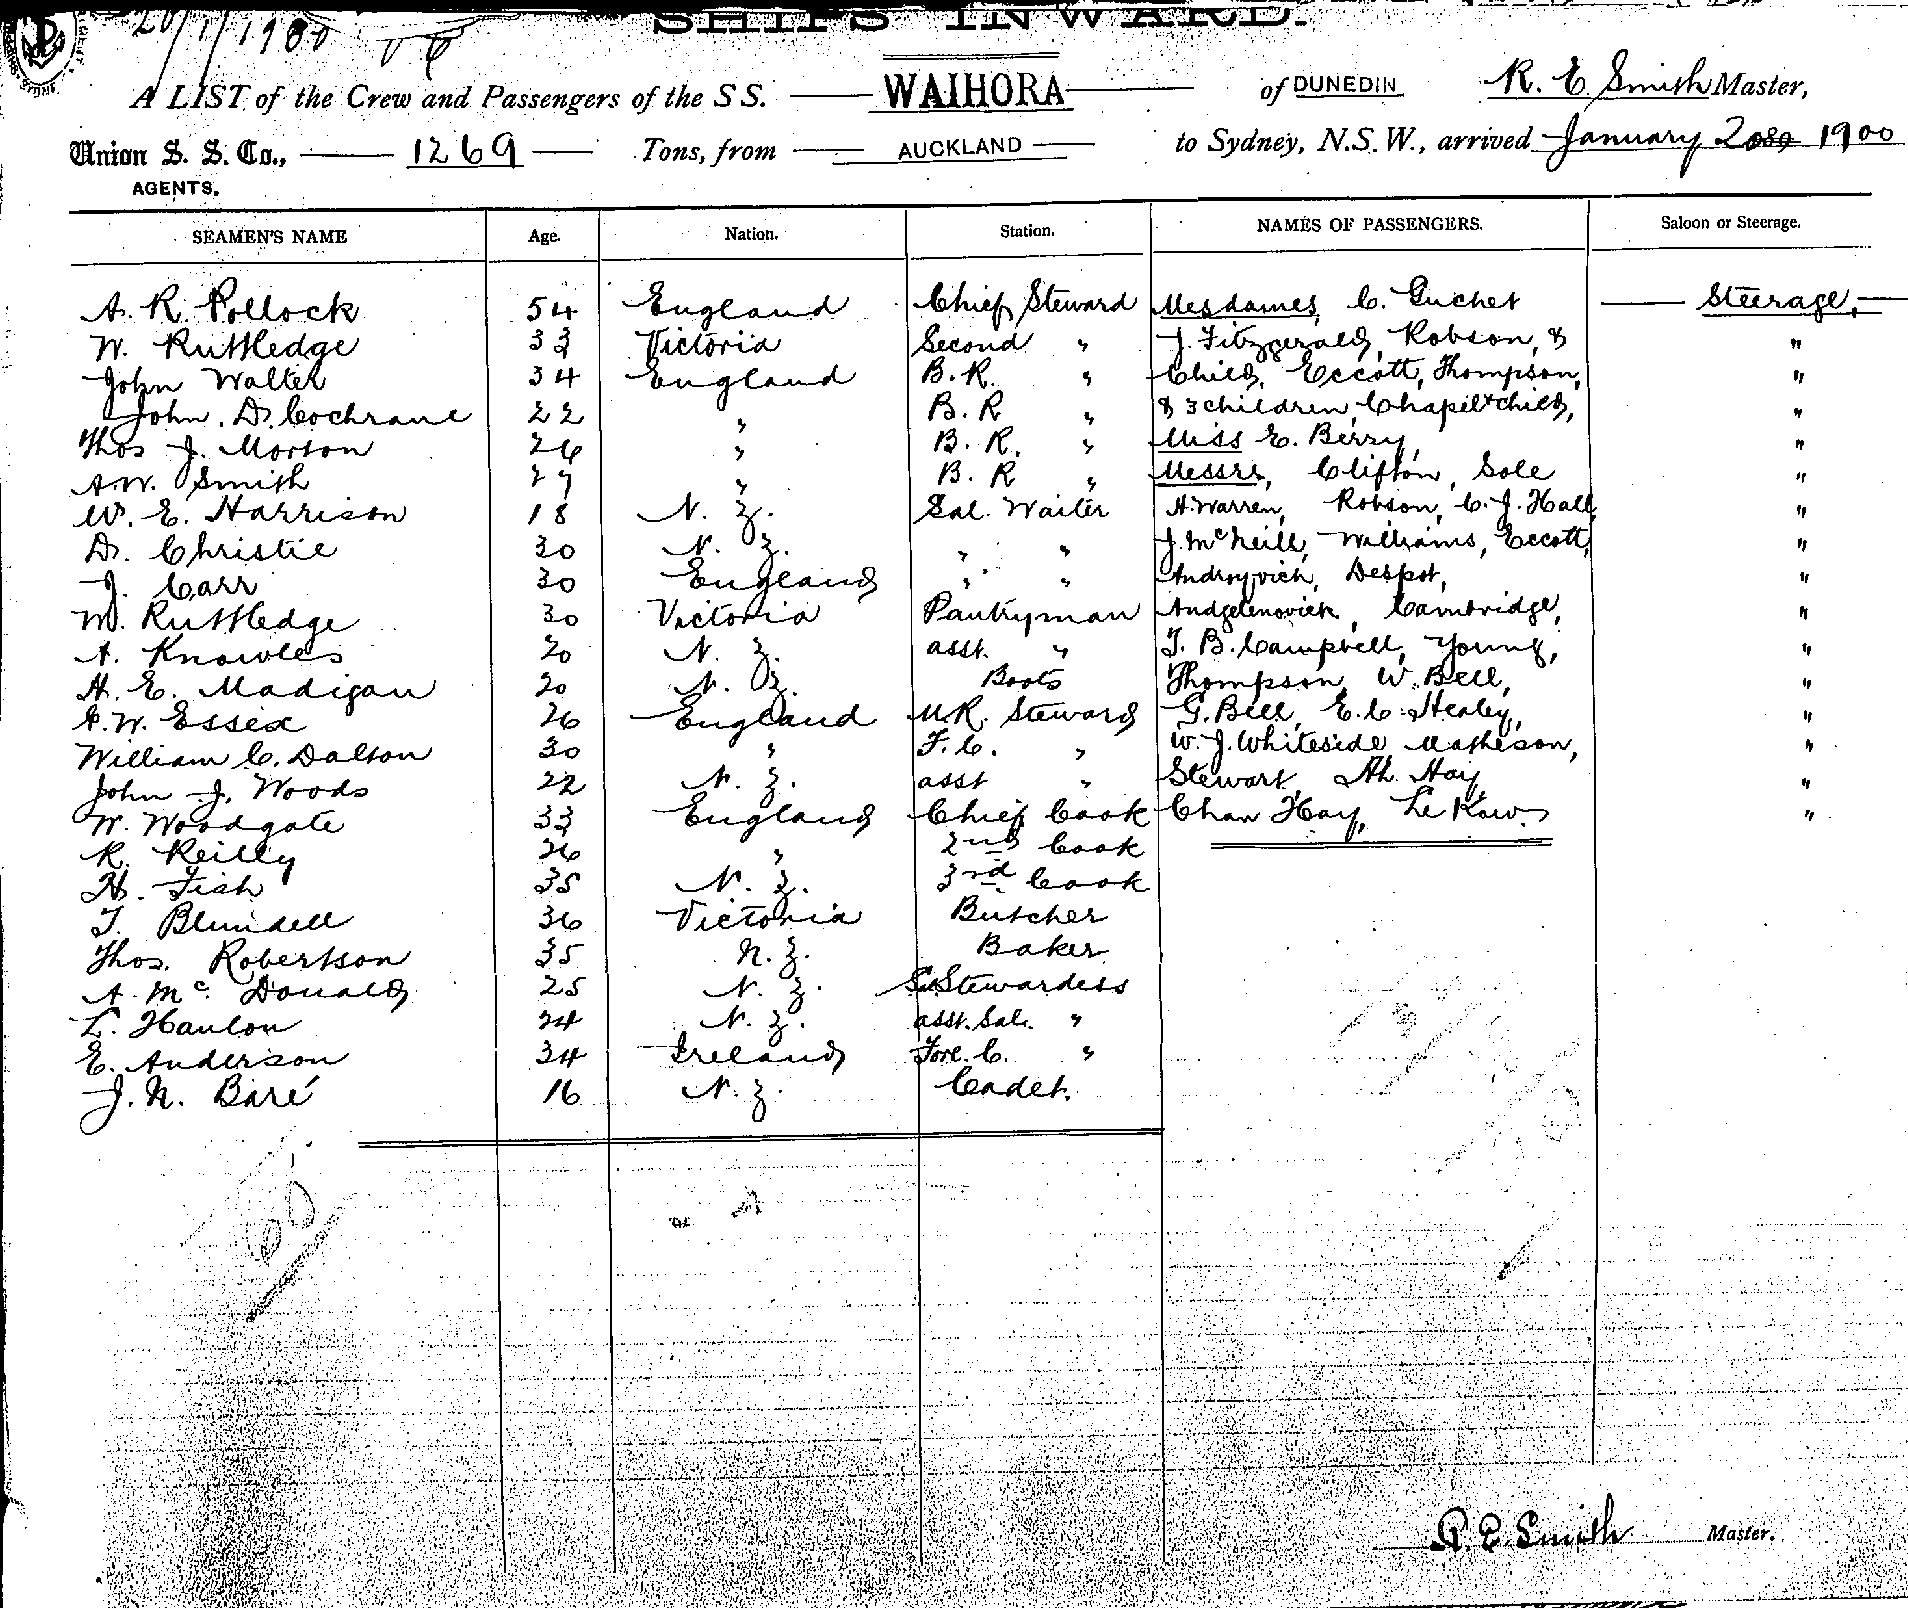 20/1/1900
SHIPS INWARD.
A LIST of the Crew and Passengers of the SS. WAIHORA of DUNEDIN R. E. Smith Master,
Union S. S. Co., 1269 Tons, from AUCKLAND to Sydney, N.S.W., arrived January 1900
AGENTS.
SEAMEN'S NAME Age. Nation. Station. NAMES OF PASSENGERS. Saloon or Steerage.
A. R. Pollock 54 England Chief Steward Mesdames, C. Guchet Steerage,
W. Ruttledge 33 Victoria Second " J. Fitzgerald, Robson, & "
John Walter 34 England B. R. " Child, Eccott, Thompson, "
John. D. Cochrane 22 " B. R " & 3 children, Chapil + child, "
Thos J. Morton 26 " B. R. " Miss E. Berry, "
A.W. Smith 27 " B. R " Messrs, Clifton, Sole "
W. E. Harrison 18 N. Z. Sal. Waiter H. Warren, Robson, C. J. Hall, "
D. Christie 30 N. Z. " " J. McNeill, Williams, Eccott, "
J. Carr 30 England " " Despot, "
W. Ruttledge 30 Victoria Pantryman Cambridge, "
A. Knowles 20 N. Z. asst. " T. B. Campbell, Young, "
H. E. Madigan 20 N. Z. Boots Thompson, W. Bell, "
G. W. Essex 26 England M.R. Steward G. Bell, E. C. Healey, "
William C. Dalton 30 " F. C. " W. J. Whiteside Matheson, "
John J. Woods 22 N. Z. asst " Stewart, Ah. Hay, "
W. Woodgate 33 England Chief Cook Chan Hay, Le Kow. "
R. Reilly 26 " 2nd Cook
H. Fish 35 N. Z. 3rd Cook
T. Blundell 36 Victoria Butcher
Thos. Robertson 35 N. Z. Baker
A. McDonald 25 N. Z. Stewardess
L. Hanlon 24 N. Z. asst. Sal. "
E. Anderson 34 Ireland Fore. C. "
J. N. Baré 16 N. Z. Cadet.
R. E. Smith Master.